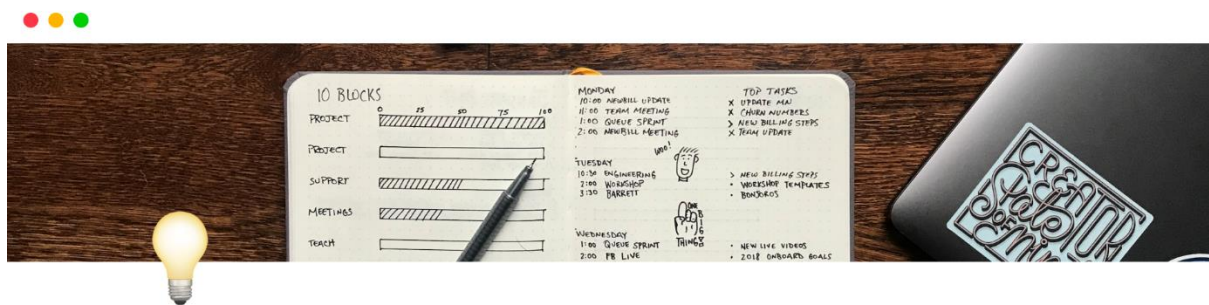 10 BLOCKS
0 25 50 75 100
PROJECT
PROJECT
SUPPORT
MEETINGS
TEACH
MONDAY
10:00 NEWBILL UPDATE
11:00 TEAM MEETING
1:00 QUEUE SPRINT
2:00 NEWBILL MEETING
WOO!
TUESDAY
10:30 ENGINEERING
2:00 WORKSHOP
3:30 BARRETT
ONE
BIG
THING
WEDNESDAY
1:00 QUEUE SPRINT
2:00 FB LIVE
TOP TASKS
X UPDATE MN
X CHURN NUMBERS
> NEW BILLING STEPS
X TEAM UPDATE
> NEW BILLING STEPS
• WORKSHOP TEMPLATES
• BONJOROS
• NEW LIVE VIDEOS
• 2018 ONBOARD GOALS
CREATOR
State
OF
Mind